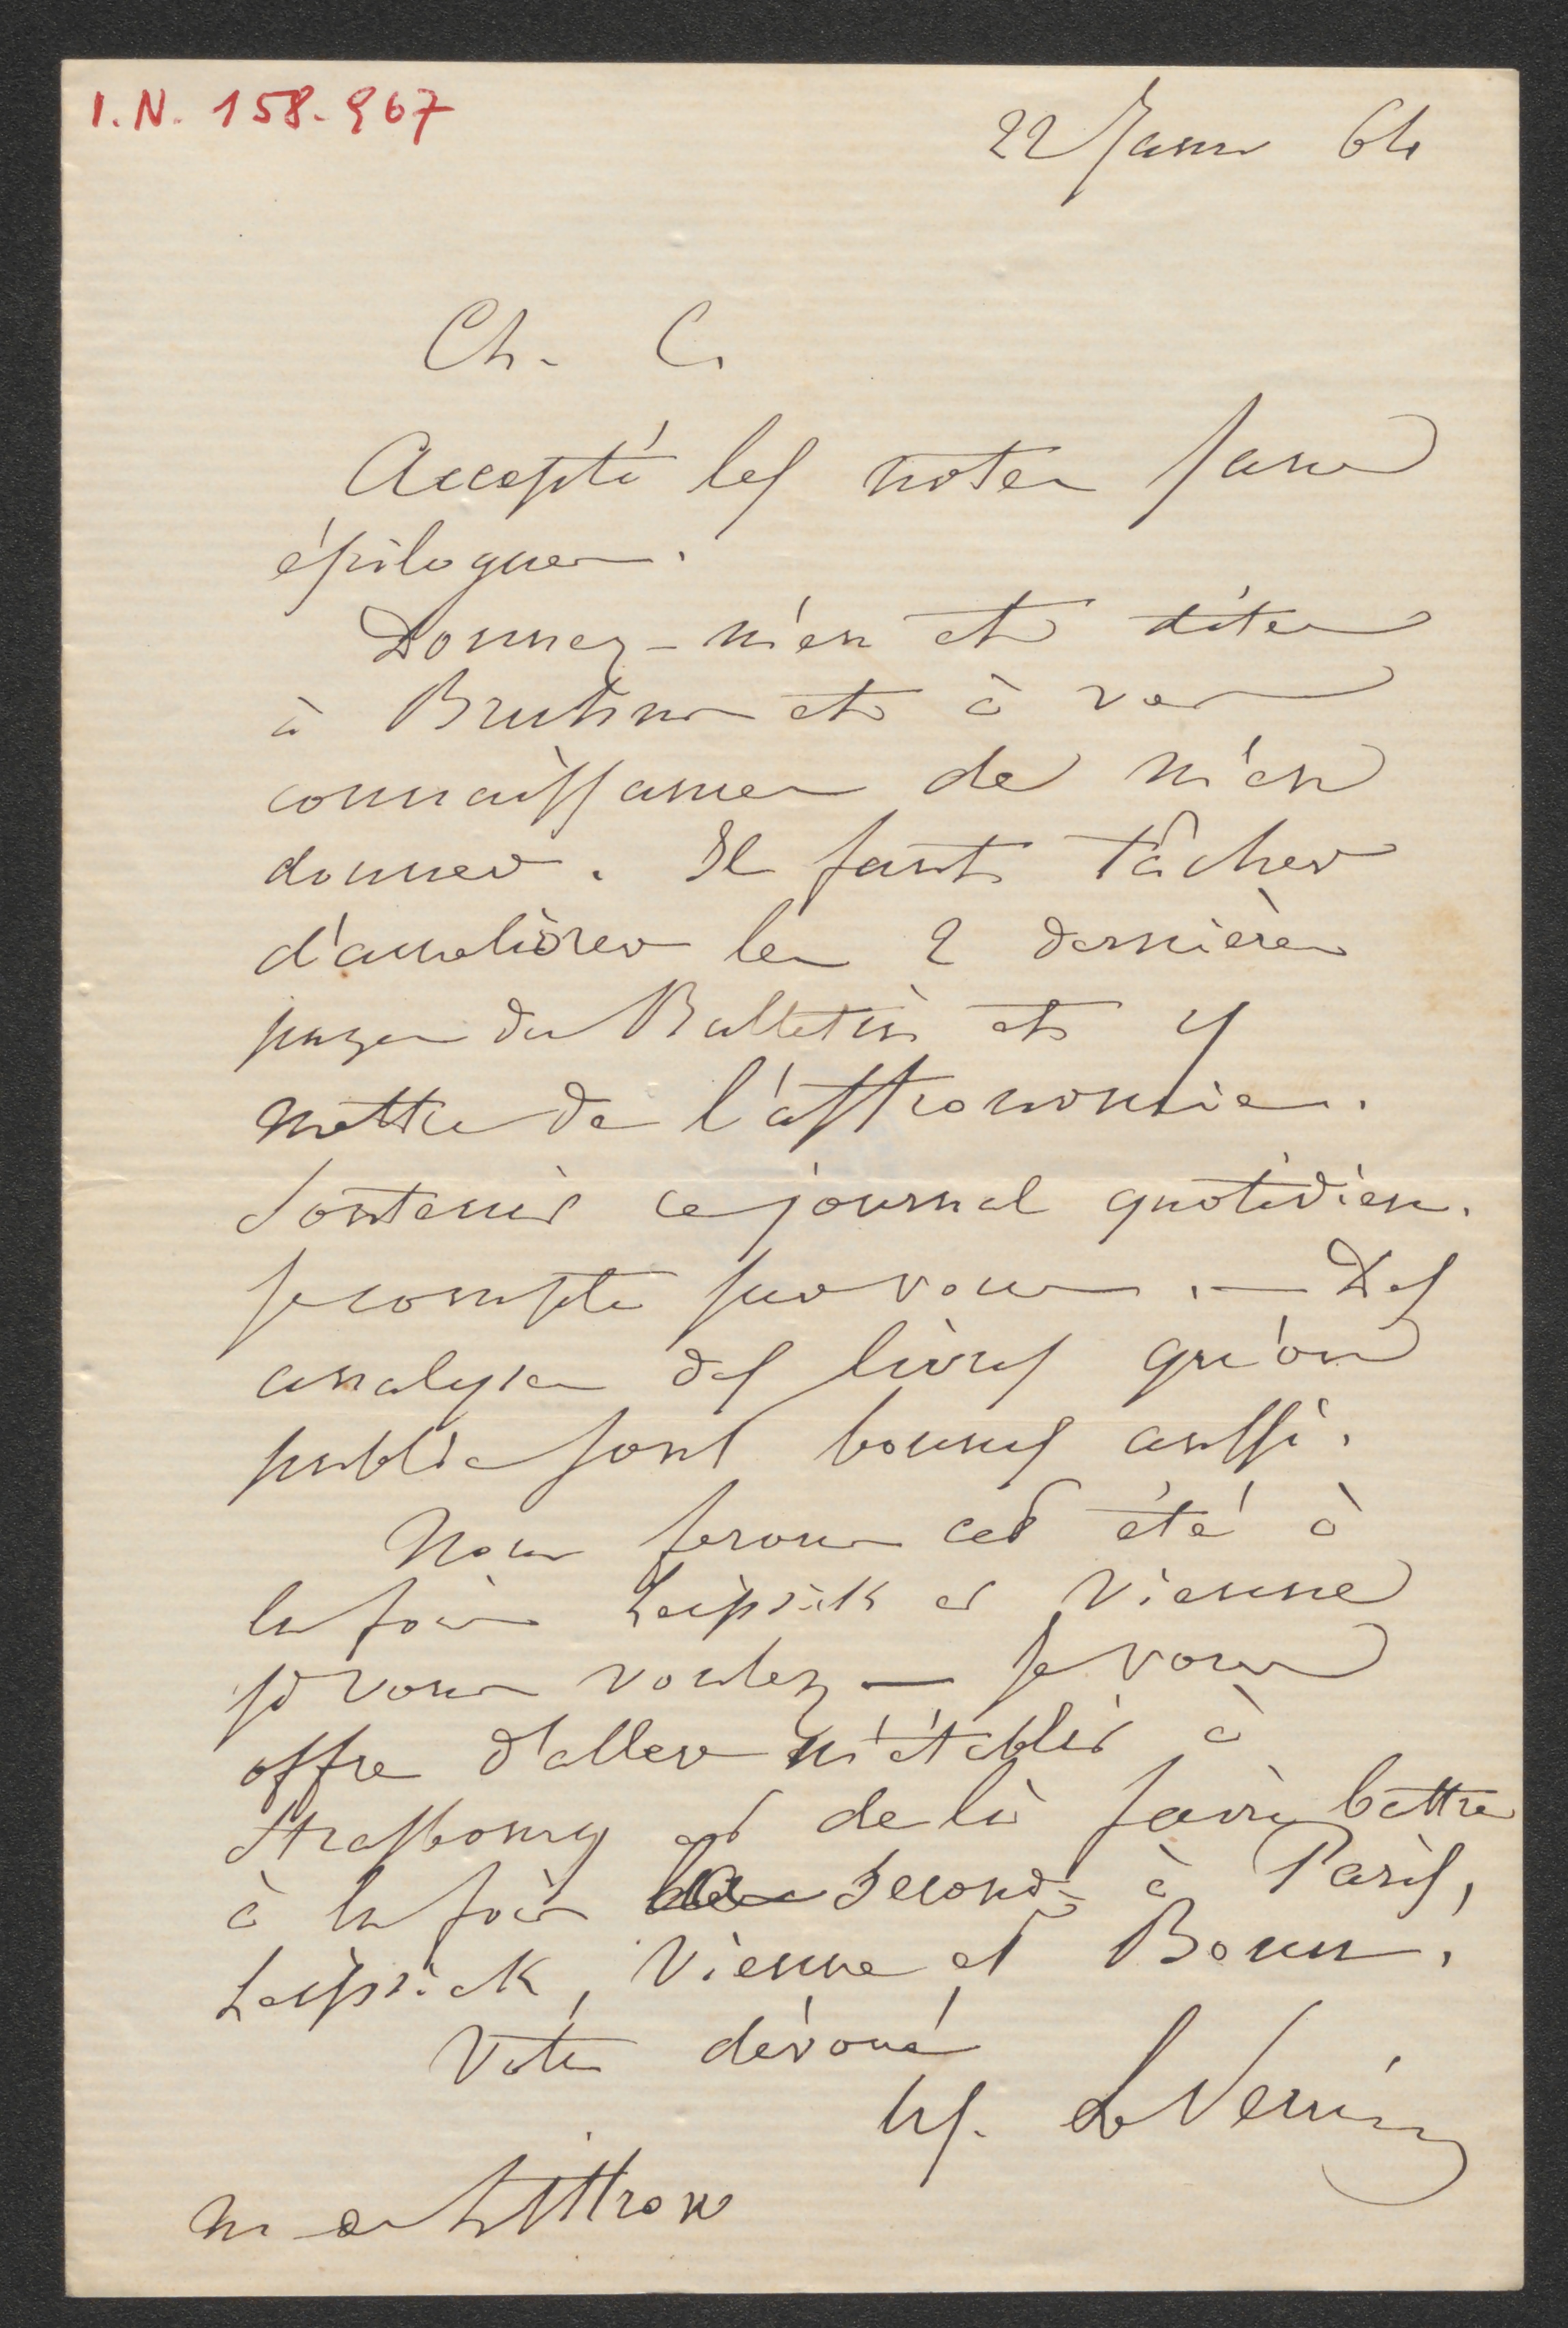 I.N. 158.967
22 Janv 64
Ch. C.
Accepté les notes sans
épiloguer.
Donnez-m'en et dites
à Bruhns et à vos
connaissances de m'en
donner. Il faut tâcher
d'améliorer les 2 dernières
pages du Bulletin et y
mettre de l'astronomie.
Soutenir ce journal quotidien.
Je compte sur vous. — Des
analyses des livres qu'on
publie sont bonnes aussi.
Nous ferons cet été à
la fois Leipsick et Vienne
si vous voulez — Je vous
offre d'aller m'établir à
Strasbourg et de là faire battre
à la fois la seconde à Paris,
Leipsick, Vienne et Bonn.
Votre dévoué
LeVerrier
M de Littrow